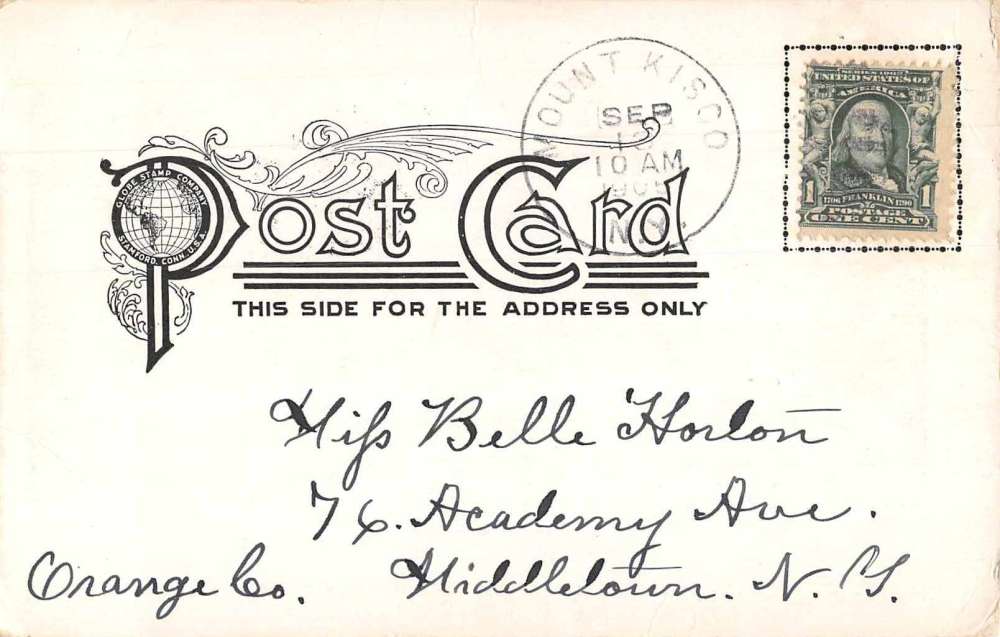 MOUNT KISCO
SEP
12
10 AM
N.Y.
SERIES 1902
UNITED STATES OF
AMERICA
1 1
1706 FRANKLIN 1790
POSTAGE
ONE CENT
GLOBE STAMP COMPANY
STAMFORD, CONN. U.S.A.
Post Card
THIS SIDE FOR THE ADDRESS ONLY
Miss Belle Horton
76. Academy Ave.
Orange Co. Middletown. N. Y.